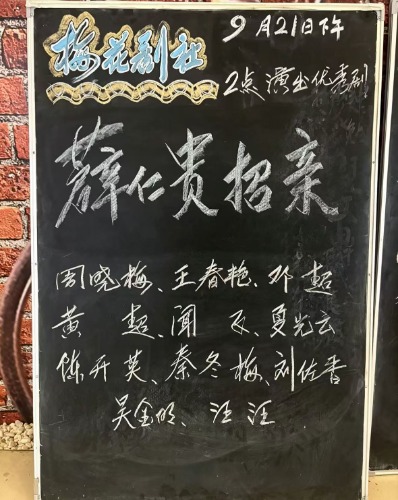 梅花剧社
9月21日下午
2点演出优秀剧
薛仁贵招亲
周晓梅、王春艳、邓超
黄超、闻飞、夏光云
陈开英、秦冬梅、刘佐香
吴金明、汪汪